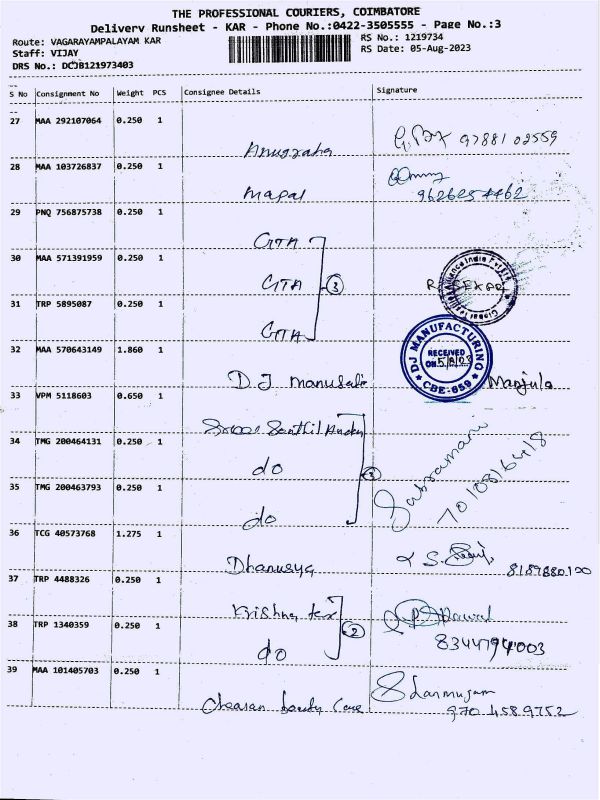 THE PROFESSIONAL COURIERS, COIMBATORE
Delivery Runsheet - KAR - Phone No.:0422-3505555 - Page No.:3
Route: VAGARAYAMPALAYAM KAR
Staff: VIJAY
DRS No.: DCJB121973403
RS No.: 1219734
RS Date: 05-Aug-2023
S No Consignment No Weight PCS Consignee Details Signature
27 MAA 292107064 0.250 1
Anugraha 9788102559
28 MAA 103726837 0.250 1
Mapal 9626254462
29 PNQ 756875738 0.250 1
GTA
30 MAA 571391959 0.250 1
GTA 3
31 TRP 5895087 0.250 1
GTA
32 MAA 570643149 1.860 1
DJ MANUFACTURING
RECEIVED
ON 5/8/23
CBE-659
D.J Manjula
33 VPM 5118603 0.650 1
Senthil
34 TMG 200464131 0.250 1
do 3
35 TMG 200463793 0.250 1
do Subramani
7010816418
36 TCG 40573768 1.275 1
Dhanusya 8189880100
37 TRP 4488326 0.250 1
Krishna tex
38 TRP 1340359 0.250 1
do 2 8344794003
39 MAA 101405703 0.250 1
care Shanmugam
9704589752